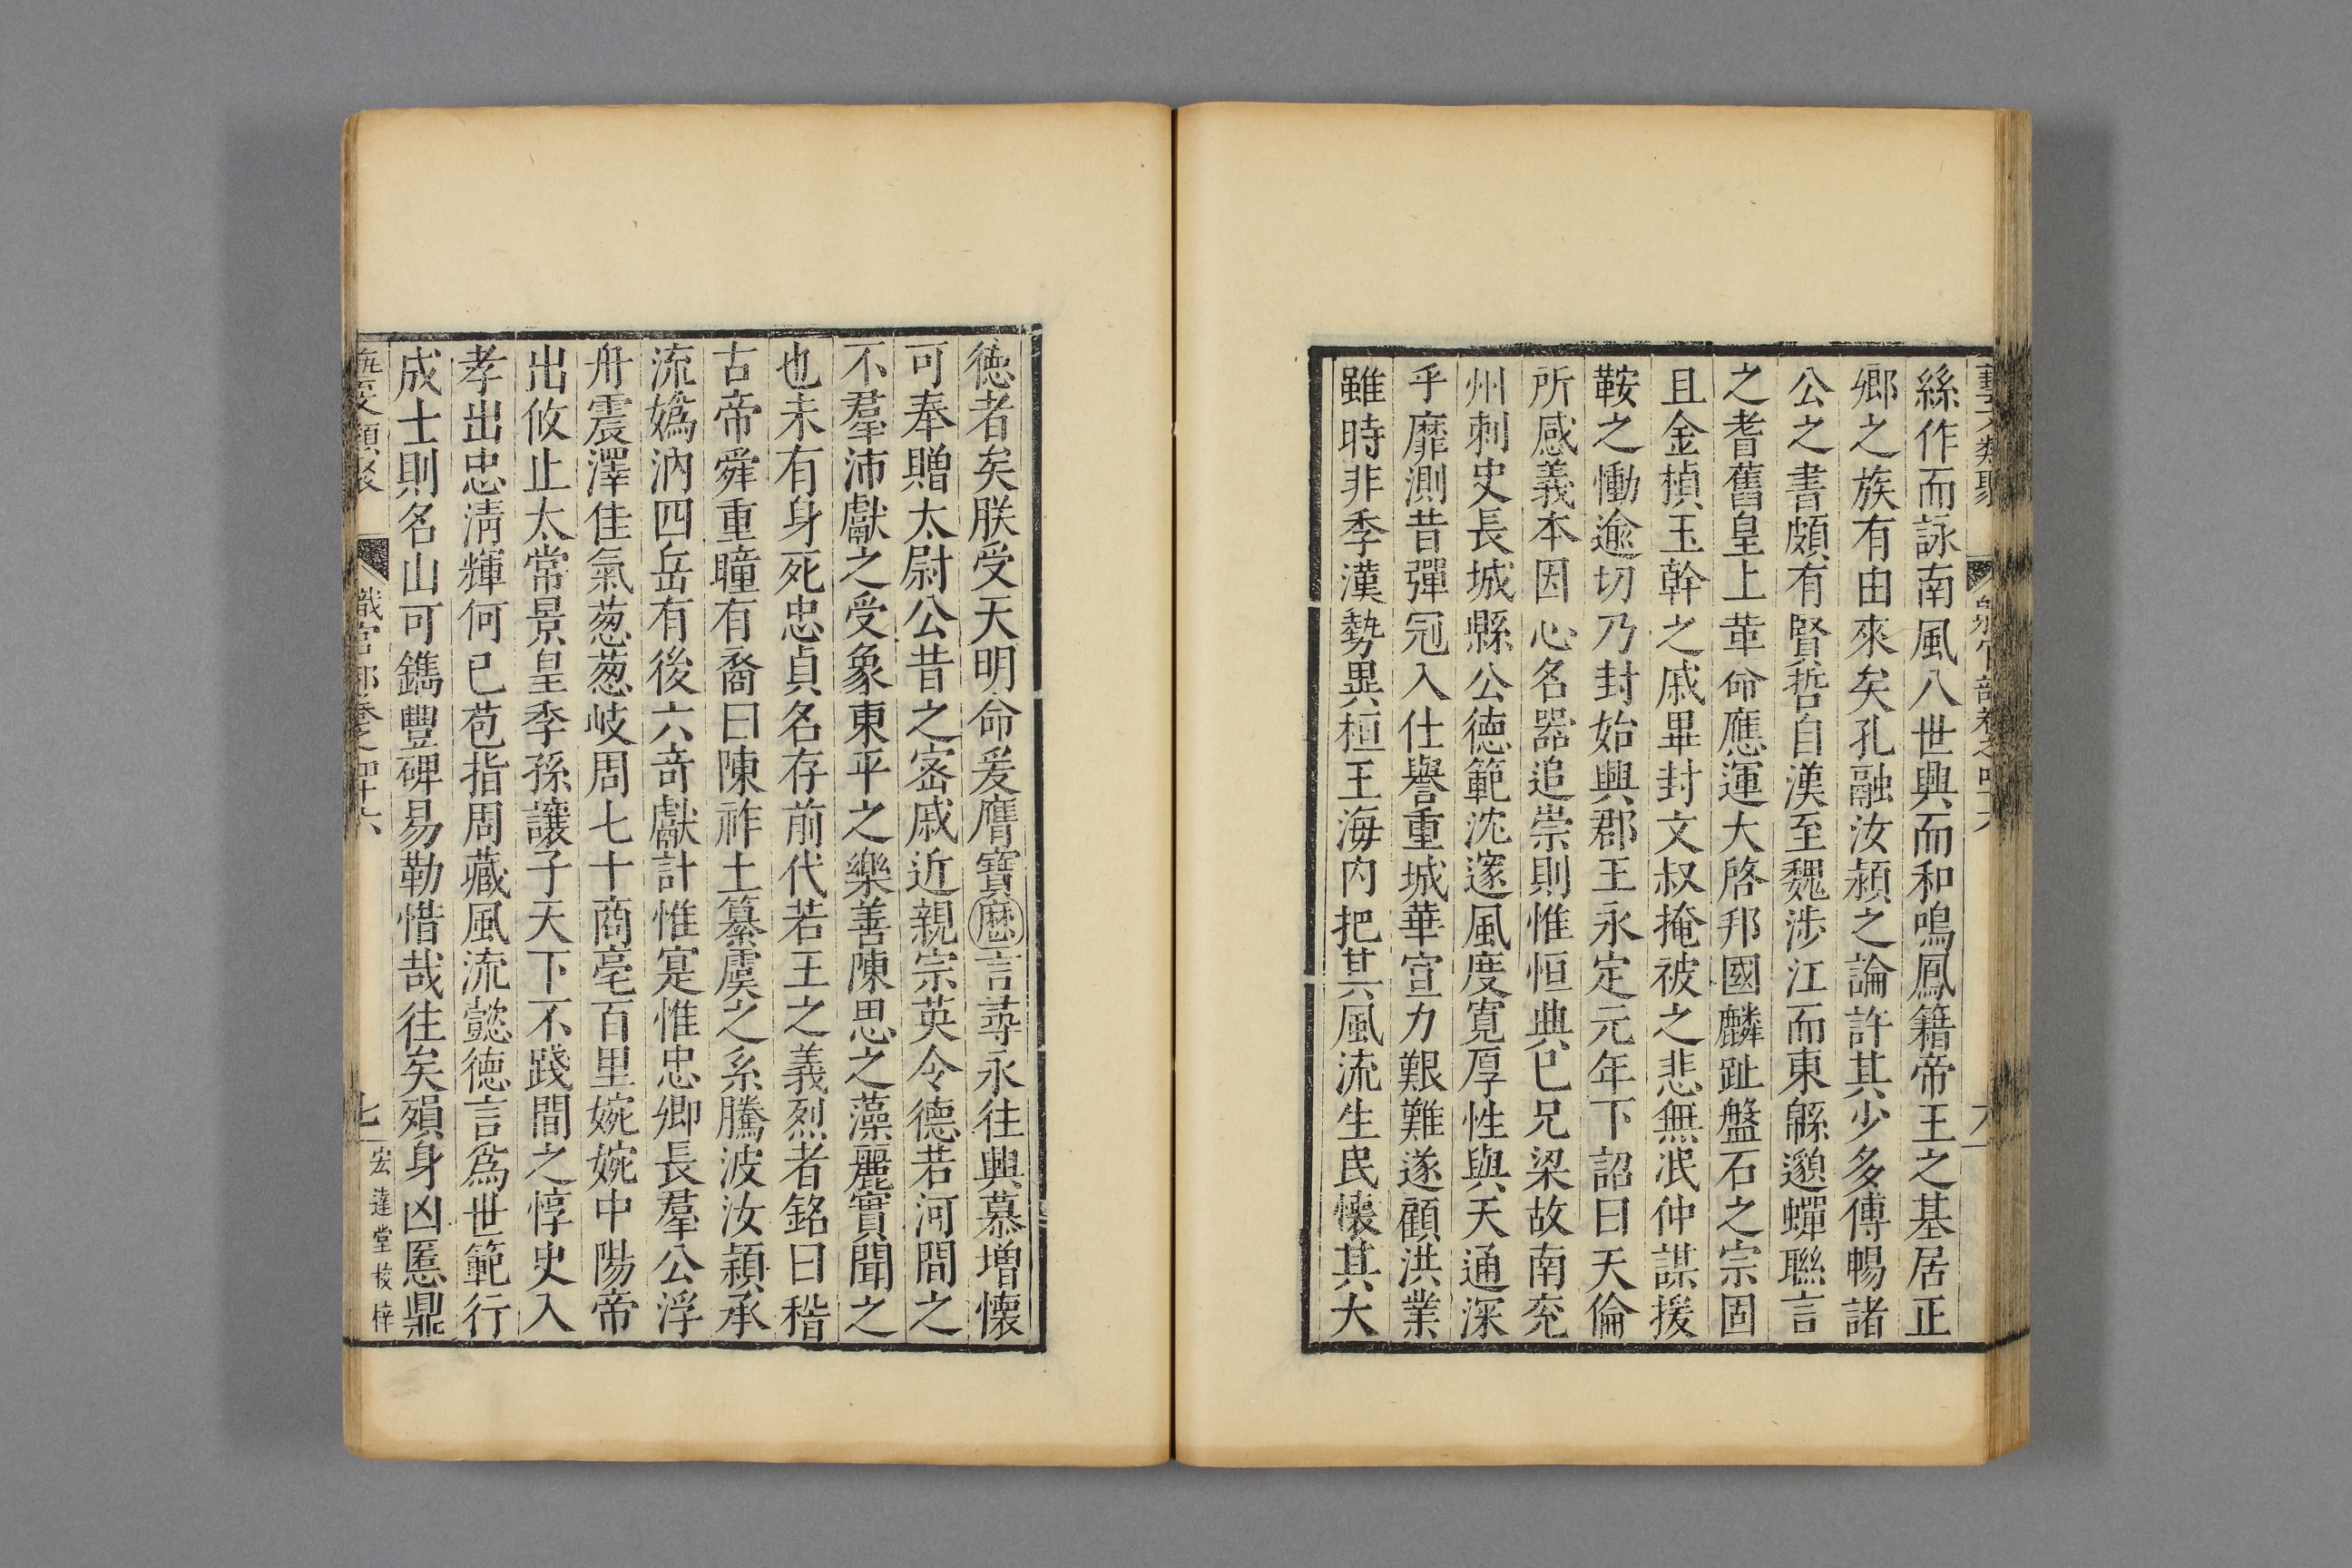 絲作而詠南風八世興而和鳴鳳籍帝王之基居正
鄉之族有由來矣孔融汝潁之論許其少多傅暢諸
公之書頗有賢哲自漢至魏涉江而東緜邈蟬聯言
之耆舊皇上革命應運大啓邦國麟趾盤石之宗固
且金楨玉幹之戚畢封文叔掩被之悲無泯仲謀援
鞍之慟逾切乃封始興郡王永定元年下詔曰天倫
所感義本因心名器追崇則惟恒典巳兄梁故南兖
州刺史長城縣公德範沈邃風度寬厚性與天通深
乎靡測昔彈冠入仕譽重城華宣力艱難遂顧洪業
雖時非季漢勢異桓王海内把其風流生民懷其大
德者矣朕受天明命爰膺寶曆言尋永往興慕增懷
可奉贈太尉公昔之宻戚近親宗英令德若河間之
不羣沛獻之受象東平之樂善陳思之藻麗實聞之
也未有身死忠貞名存前代若王之義烈者銘曰稽
古帝舜重瞳有裔曰陳祚土纂虞之系騰波汝潁承
流嬀汭四岳有後六竒獻計惟寔惟忠卿長羣公浮
舟震澤佳氣葱葱岐周七十商亳百里婉婉中陽帝
出攸止太常景皇季孫讓子天下不踐間之惇史入
孝出忠淸輝何已苞指周藏風流懿德言爲世範行
成士則名山可鐫豐碑易勒惜哉往矣殞身凶慝鼎
藝文類聚 職官部卷之四十六 七 宏達堂校梓